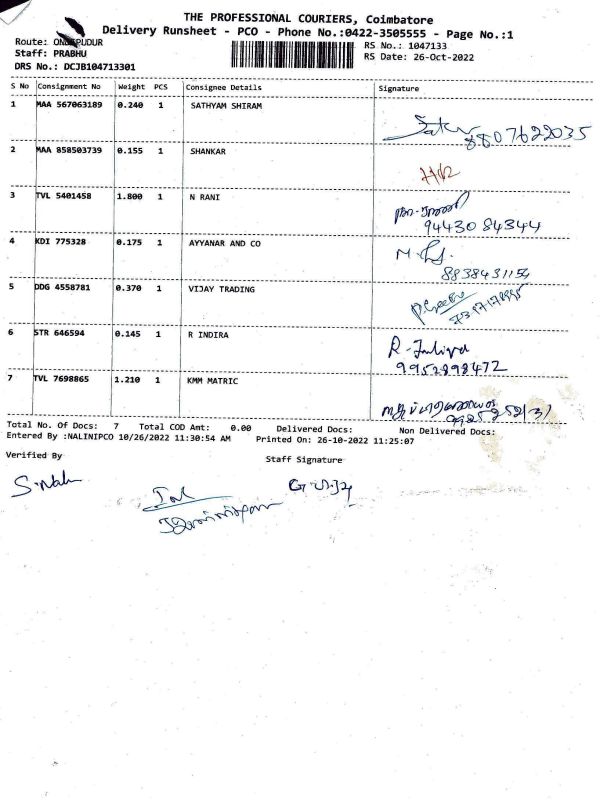 THE PROFESSIONAL COURIERS, Coimbatore
Delivery Runsheet - PCO - Phone No.:0422-3505555 - Page No.:1
Route:
Staff: PRABHU
DRS No.: DCJB104713301
RS No.: 1047133
RS Date: 26-Oct-2022
S No Consignment No Weight PCS Consignee Details Signature
1 MAA 567063189 0.240 1 SATHYAM SHIRAM
8807622035
2 MAA 858503739 0.155 1 SHANKAR
3 TVL 5401458 1.800 1 N RANI
9443084344
4 KDI 775328 0.175 1 AYYANAR AND CO
8838431154
5 DDG 4558781 0.370 1 VIJAY TRADING
6 STR 646594 0.145 1 R INDIRA
R.
9952898472
7 TVL 7698865 1.210 1 KMM MATRIC
Total No. Of Docs: 7 Total COD Amt: 0.00 Delivered Docs: Non Delivered Docs:
Entered By :NALINIPCO 10/26/2022 11:30:54 AM Printed On: 26-10-2022 11:25:07
Verified By Staff Signature